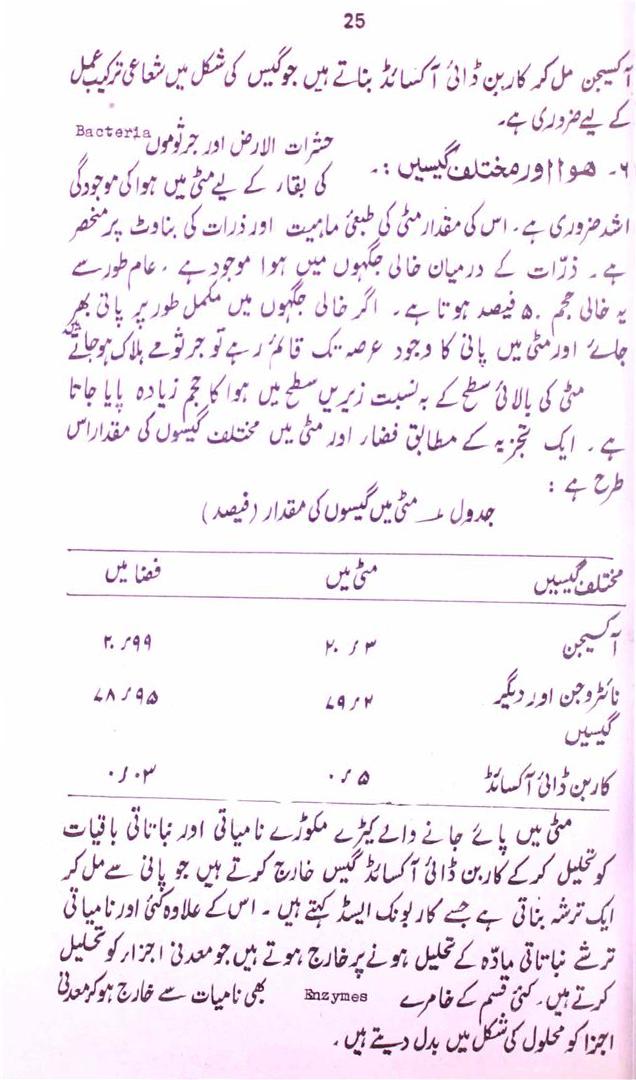 25
آکسیجن مل کر کاربن ڈائی آکسائڈ بناتے ہیں جو گیس کی شکل میں شعاعی ترکیب عمل
کے لیے ضروری ہے۔
۶۔ ھوا اور مختلف گیسیں :۔ حشرات الارض اور جرثوموں Bacteria
کی بقاء کے لیے مٹی میں ہوا کی موجودگی
اشد ضروری ہے۔ اس کی مقدار مٹی کی طبعئ ماہیت اور ذرات کی بناوٹ پر منحصر
ہے۔ ذرّات کے درمیان خالی جگہوں میں ہوا موجود ہے۔ عام طور سے
یہ خالی حجم ۵۰ فیصد ہوتا ہے۔ اگر خالی جگہوں میں مکمل طور پر پانی بھر
جائے اور مٹی میں پانی کا وجود عرصہ تک قائم رہے تو جرثومے ہلاک ہو جاتے ہیں۔
مٹی کی بالائی سطح کے بہ نسبت زیریں سطح میں ہوا کا حجم زیادہ پایا جاتا
ہے۔ ایک تجزیہ کے مطابق فضاء اور مٹی میں مختلف گیسوں کی مقدار اس
طرح ہے :
جدول ۱۔ مٹی میں گیسوں کی مقدار (فیصد)
مختلف گیسیں مٹی میں فضا میں
آکسیجن ۲۰٫۳ ۲۰٫۹۹
نائٹروجن اور دیگر ۷۹٫۲ ۷۸٫۹۵
گیسیں
کاربن ڈائی آکسائڈ ۰٫۵ ۰٫۰۳
مٹی میں پائے جانے والے کیڑے مکوڑے نامیاتی اور نباتاتی باقیات
کو تحلیل کر کے کاربن ڈائی آکسائڈ گیس خارج کرتے ہیں جو پانی سے مل کر
ایک ترشہ بناتی ہے جسے کاربونک ایسڈ کہتے ہیں۔ اس کے علاوہ کئی اور نامیاتی
ترشے نباتاتی مادّہ کے تحلیل ہونے پر خارج ہوتے ہیں جو معدنی اجزاء کو تحلیل
کرتے ہیں۔ کئی قسم کے خامرے Enzymes بھی نامیات سے خارج ہو کر معدنی
اجزا کو محلول کی شکل میں بدل دیتے ہیں۔